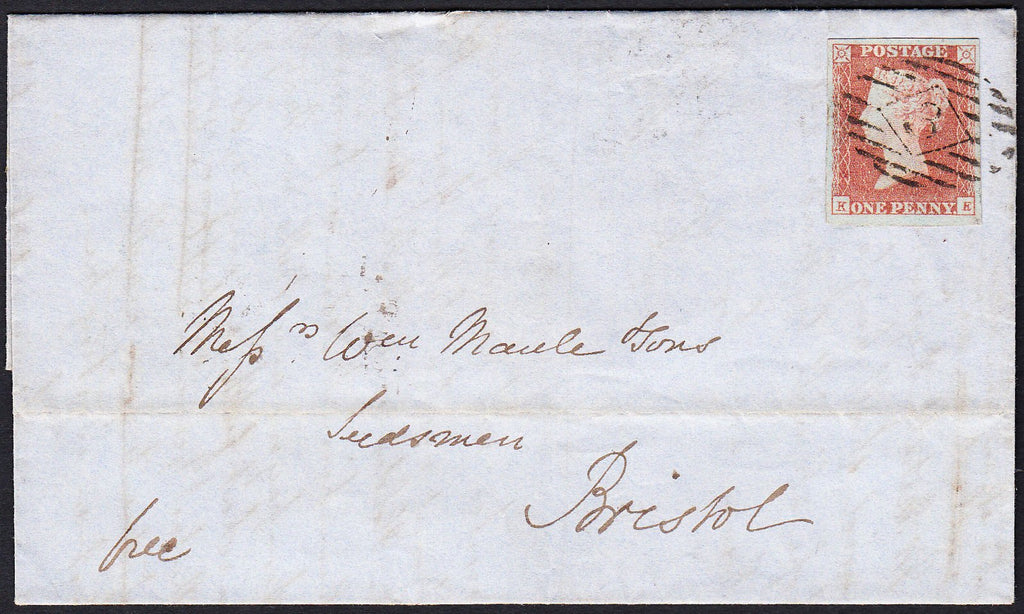 POSTAGE
K ONE PENNY E
Messrs Wm Maule & Sons
Seedsmen
Bristol
free